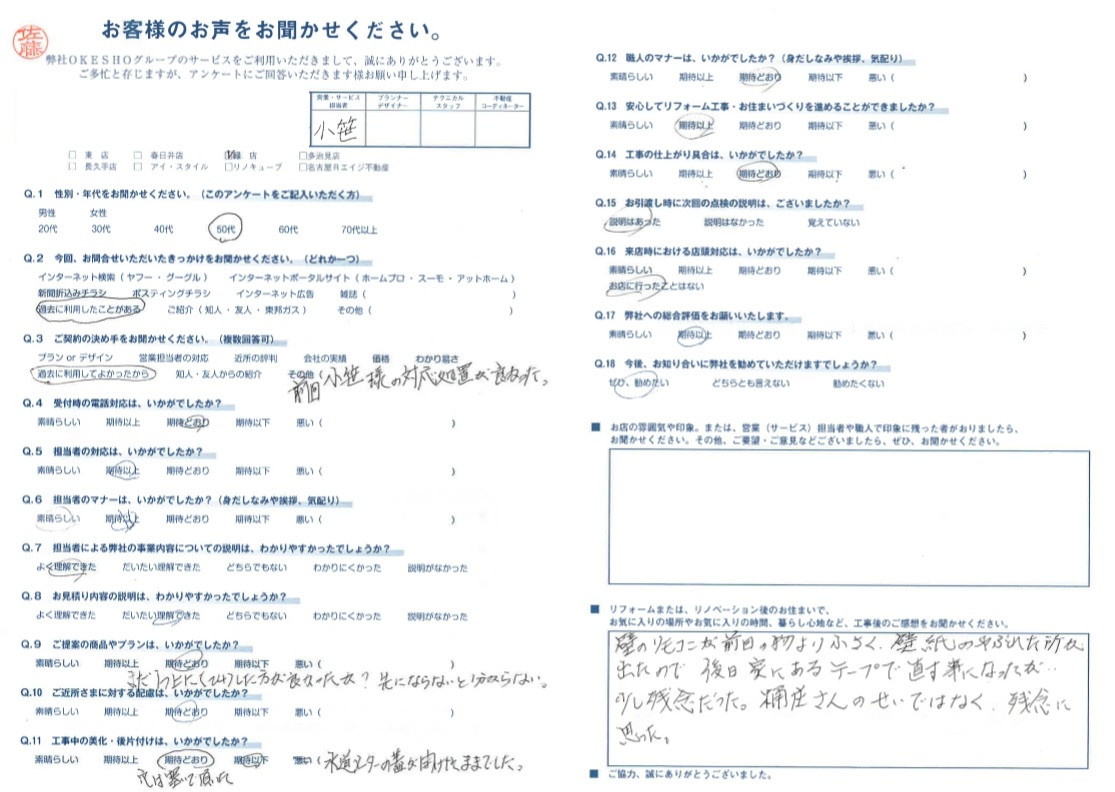 佐藤
お客様のお声をお聞かせください。
弊社OKESHOグループのサービスをご利用いただきまして、誠にありがとうございます。
ご多忙と存じますが、アンケートにご回答いただきます様お願い申し上げます。
営業・サービス担当者 プランナーデザイナー テクニカルスタッフ 不動産コーディネーター
小笹
□ 東 店 □ 春日井店 ☑緑 店 □多治見店
□ 長久手店 □ アイ・スタイル □リノキューブ □名古屋Rエイジ不動産
Q.1 性別・年代をお聞かせください。（このアンケートをご記入いただく方）
男性 女性
20代 30代 40代 50代 60代 70代以上
Q.2 今回、お問合せいただいたきっかけをお聞かせください。（どれか一つ）
インターネット検索（ ヤフー ・ グーグル ） インターネットポータルサイト（ ホームプロ ・ スーモ ・ アットホーム ）
新聞折込みチラシ ポスティングチラシ インターネット広告 雑誌（ ）
過去に利用したことがある ご紹介（ 知人 ・ 友人 ・ 東邦ガス ） その他（ ）
Q.3 ご契約の決め手をお聞かせください。（複数回答可）
プラン or デザイン 営業担当者の対応 近所の評判 会社の実績 価格 わかり易さ
過去に利用してよかったから 知人・友人からの紹介 その他（
前回 小笹様の対応処置が良かった。
Q.4 受付時の電話対応は、いかがでしたか？
素晴らしい 期待以上 期待どおり 期待以下 悪い（ ）
Q.5 担当者の対応は、いかがでしたか？
素晴らしい 期待以上 期待どおり 期待以下 悪い（ ）
Q.6 担当者のマナーは、いかがでしたか？（身だしなみや挨拶、気配り）
素晴らしい 期待以上 期待どおり 期待以下 悪い（ ）
Q.7 担当者による弊社の事業内容についての説明は、わかりやすかったでしょうか？
よく理解できた だいたい理解できた どちらでもない わかりにくかった 説明がなかった
Q.8 お見積り内容の説明は、わかりやすかったでしょうか？
よく理解できた だいたい理解できた どちらでもない わかりにくかった 説明がなかった
Q.9 ご提案の商品やプランは、いかがでしたか？
素晴らしい 期待以上 期待どおり 期待以下 悪い（ ）
した方が良かったか？ 先にならないと分からない。
Q.10 ご近所さまに対する配慮は、いかがでしたか？
素晴らしい 期待以上 期待どおり 期待以下 悪い（ ）
Q.11 工事中の美化・後片付けは、いかがでしたか？
素晴らしい 期待以上 期待どおり 期待以下 悪い（ 水道メーターの蓋が開けたままでした。
Q.12 職人のマナーは、いかがでしたか？（身だしなみや挨拶、気配り）
素晴らしい 期待以上 期待どおり 期待以下 悪い（ ）
Q.13 安心してリフォーム工事・お住まいづくりを進めることができましたか？
素晴らしい 期待以上 期待どおり 期待以下 悪い（ ）
Q.14 工事の仕上がり具合は、いかがでしたか？
素晴らしい 期待以上 期待どおり 期待以下 悪い（ ）
Q.15 お引渡し時に次回の点検の説明は、ございましたか？
説明はあった 説明はなかった 覚えていない
Q.16 来店時における店頭対応は、いかがでしたか？
素晴らしい 期待以上 期待どおり 期待以下 悪い（ ）
お店に行ったことはない
Q.17 弊社への総合評価をお願いいたします。
素晴らしい 期待以上 期待どおり 期待以下 悪い（ ）
Q.18 今後、お知り合いに弊社を勧めていただけますでしょうか？
ぜひ、勧めたい どちらとも言えない 勧めたくない
■ お店の雰囲気や印象。または、営業（サービス）担当者や職人で印象に残った者がおりましたら、
お聞かせください。その他、ご要望・ご意見などございましたら、ぜひ、お聞かせください。
■ リフォームまたは、リノベーション後のお住まいで、
お気に入りの場所やお気に入りの時間、暮らし心地など、工事後のご感想をお聞かせください。
壁のリモコンが前日の物より小さく、壁紙のやぶれた所が
出たので 後日 家にあるテープで直す事になったが…
少し残念だった。桶庄さんのせいではなく、残念に
思った。
■ ご協力、誠にありがとうございました。